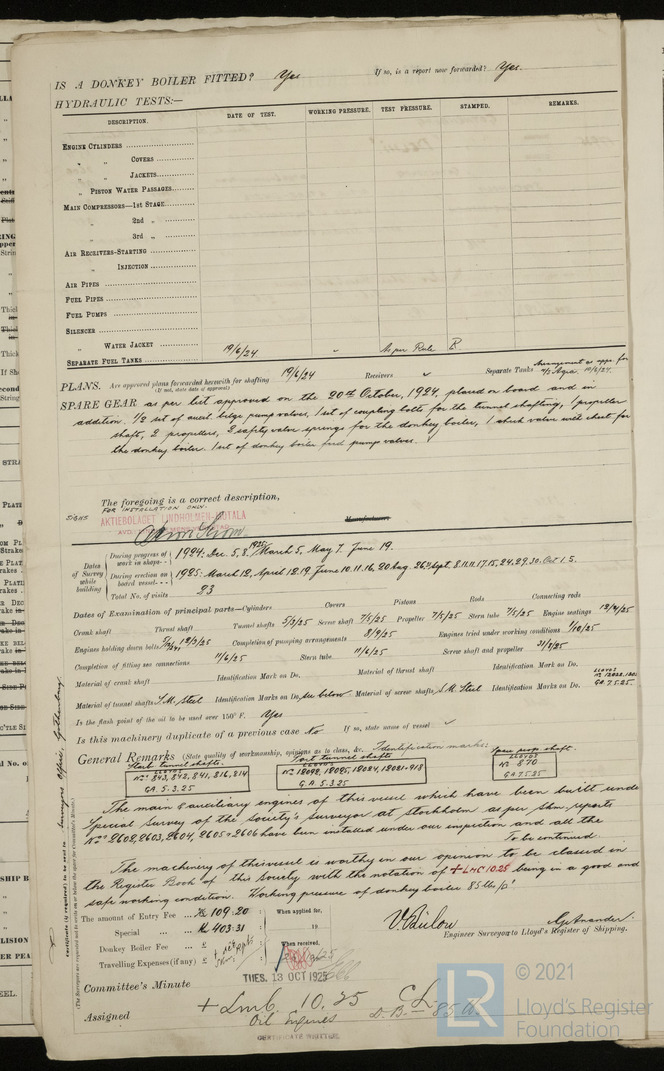 IS A DONKEY BOILER FITTED? Yes If so, is a report now forwarded? Yes.
HYDRAULIC TESTS:—
DESCRIPTION. DATE OF TEST. WORKING PRESSURE. TEST PRESSURE. STAMPED. REMARKS.
ENGINE CYLINDERS
" " COVERS
" " JACKETS
" PISTON WATER PASSAGES
MAIN COMPRESSORS—1st STAGE
" 2nd "
" 3rd "
AIR RECEIVERS—STARTING
" INJECTION
AIR PIPES
FUEL PIPES
FUEL PUMPS
SILENCER
" WATER JACKET
SEPARATE FUEL TANKS 19/6/24 " As per Rule B
PLANS. Are approved plans forwarded herewith for shafting 19/6/24 Receivers " Separate Tanks
(If not, state date of approval)
SPARE GEAR as per list approved on the 20th October, 1924, placed on board and in
addition. 1/2 set of bilge pump valves, 1 set of coupling bolts for the tunnel shafting, 1 propeller
shaft, 2 propellers, 2 safety valve springs for the donkey boiler, 1 check valve with chest for
the donkey boiler. 1 set of donkey boiler feed pump valves.
The foregoing is a correct description,
FOR INSTALLATION ONLY.
SIGNS AKTIEBOLAGET LINDHOLMEN-MOTALA
Manufacturer.
Dates of Survey while building
During progress of work in shops-- 1924: Dec. 5, 8, 1925 March 5, May 7. June 19.
During erection on board vessel--- 1925: March 12, April 12.19. June 10.11.16. 20 Aug. 26. Sept. 8.11.17.15.24.29.30. Oct 1.5.
Total No. of visits 23
Dates of Examination of principal parts—Cylinders Covers Pistons Rods Connecting rods
Crank shaft Thrust shaft Tunnel shafts 5/3/25 Screw shaft 7/5/25 Propeller 7/5/25 Stern tube 7/5/25 Engine seatings 12/4/25
Engines holding down bolts 12/3/25 Completion of pumping arrangements 8/9/25 Engines tried under working conditions 1/10/25
Completion of fitting sea connections 11/6/25 Stern tube 11/6/25 Screw shaft and propeller 31/8/25
Material of crank shaft Identification Mark on Do. Material of thrust shaft Identification Mark on Do.
Material of tunnel shafts S.M. Steel Identification Marks on Do. see below Material of screw shafts S.M. Steel Identification Marks on Do. LLOYDS GA. 7.5.25.
Is the flash point of the oil to be used over 150° F. Yes
Is this machinery duplicate of a previous case No If so, state name of vessel
General Remarks (State quality of workmanship, opinions as to class, &c. Identification marks:
Starb. tunnel shafts. Port tunnel shafts Spare prop. shaft.
LLOYDS Nos 843, 842, 841, 816, 814 GA. 5.3.25
LLOYDS No. 12098, 12095, 12024, 12021-918 G.A. 5.3.25
LLOYDS No. 870 GA 7.5.25
The main & auxiliary engines of this vessel which have been built under
Special Survey of the Society's Surveyor at Stockholm as per Stm. reports
Nos 2602, 2603, 2604, 2605 & 2606 have been installed under our inspection and all the
To be continued.
The machinery of this vessel is worthy in our opinion to be classed in
the Register Book of this Society with the notation of + LMC 10.25 being in a good and
safe working condition. Working pressure of donkey boiler 85 lbs/p"
The amount of Entry Fee ... Kr. 109:20 When applied for,
Special ... ... Kr 403:31 19
Donkey Boiler Fee ... £ When received,
Travelling Expenses (if any) £
V. Bülow
Engineer Surveyor to Lloyd's Register of Shipping.
TUES. 13 OCT 1925
Committee's Minute
Assigned + Lmb. 10.25 C.L.
Oil Engines D.B. - 85 lb.
CERTIFICATE WRITTEN.
Certificate (if required) to be sent to Surveyors office, Gothenburg.
(The Surveyors are requested not to write on or below the space for Committee's Minute.)
LR © 2021
Lloyd's Register
Foundation